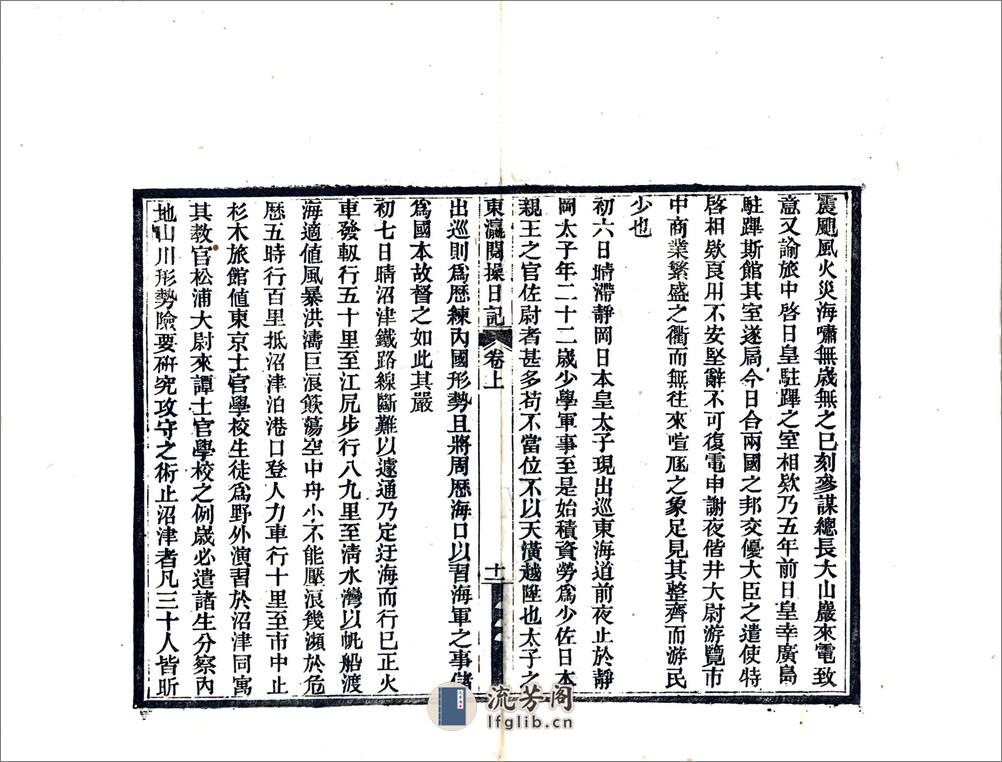 震颶風火災海嘯無歲無之巳刻參謀總長大山巖來電致
意又諭旅中啓日皇駐蹕之室相欵乃五年前日皇幸廣島
駐蹕斯館其室遂扃今日合兩國之邦交優大臣之遣使特
啓相欵良用不安堅辭不可復電申謝夜偕井大尉游覽市
中商業繁盛之衢而無往來喧豗之象足見其整齊而游民
少也
初六日晴滯靜岡日本皇太子現出巡東海道前夜止於靜
岡太子年二十二歲少學軍事至是始積資勞爲少佐日本
親王之官佐尉者甚多苟不當位不以天潢越陞也太子之
東瀛閱操日記 卷上 十一
出巡則爲歷練內國形勢且將周歷海口以習海軍之事儲
爲國本故督之如此其嚴
初七日晴沼津鐵路線斷難以遽通乃定迂海而行巳正火
車發軔行五十里至江尻步行八九里至清水灣以帆船渡
海適值風暴洪濤巨浪簸蕩空中舟小不能壓浪幾瀕於危
歷五時行百里抵沼津泊港口登人力車行十里至市中止
杉木旅館値東京士官學校生徒爲野外演習於沼津同寓
其敎官松浦大尉來譚士官學校之例歲必遣諸生分察內
地山川形勢險要硏究攻守之術止沼津者凡三十人皆昕
流芳阁
lfglib.cn